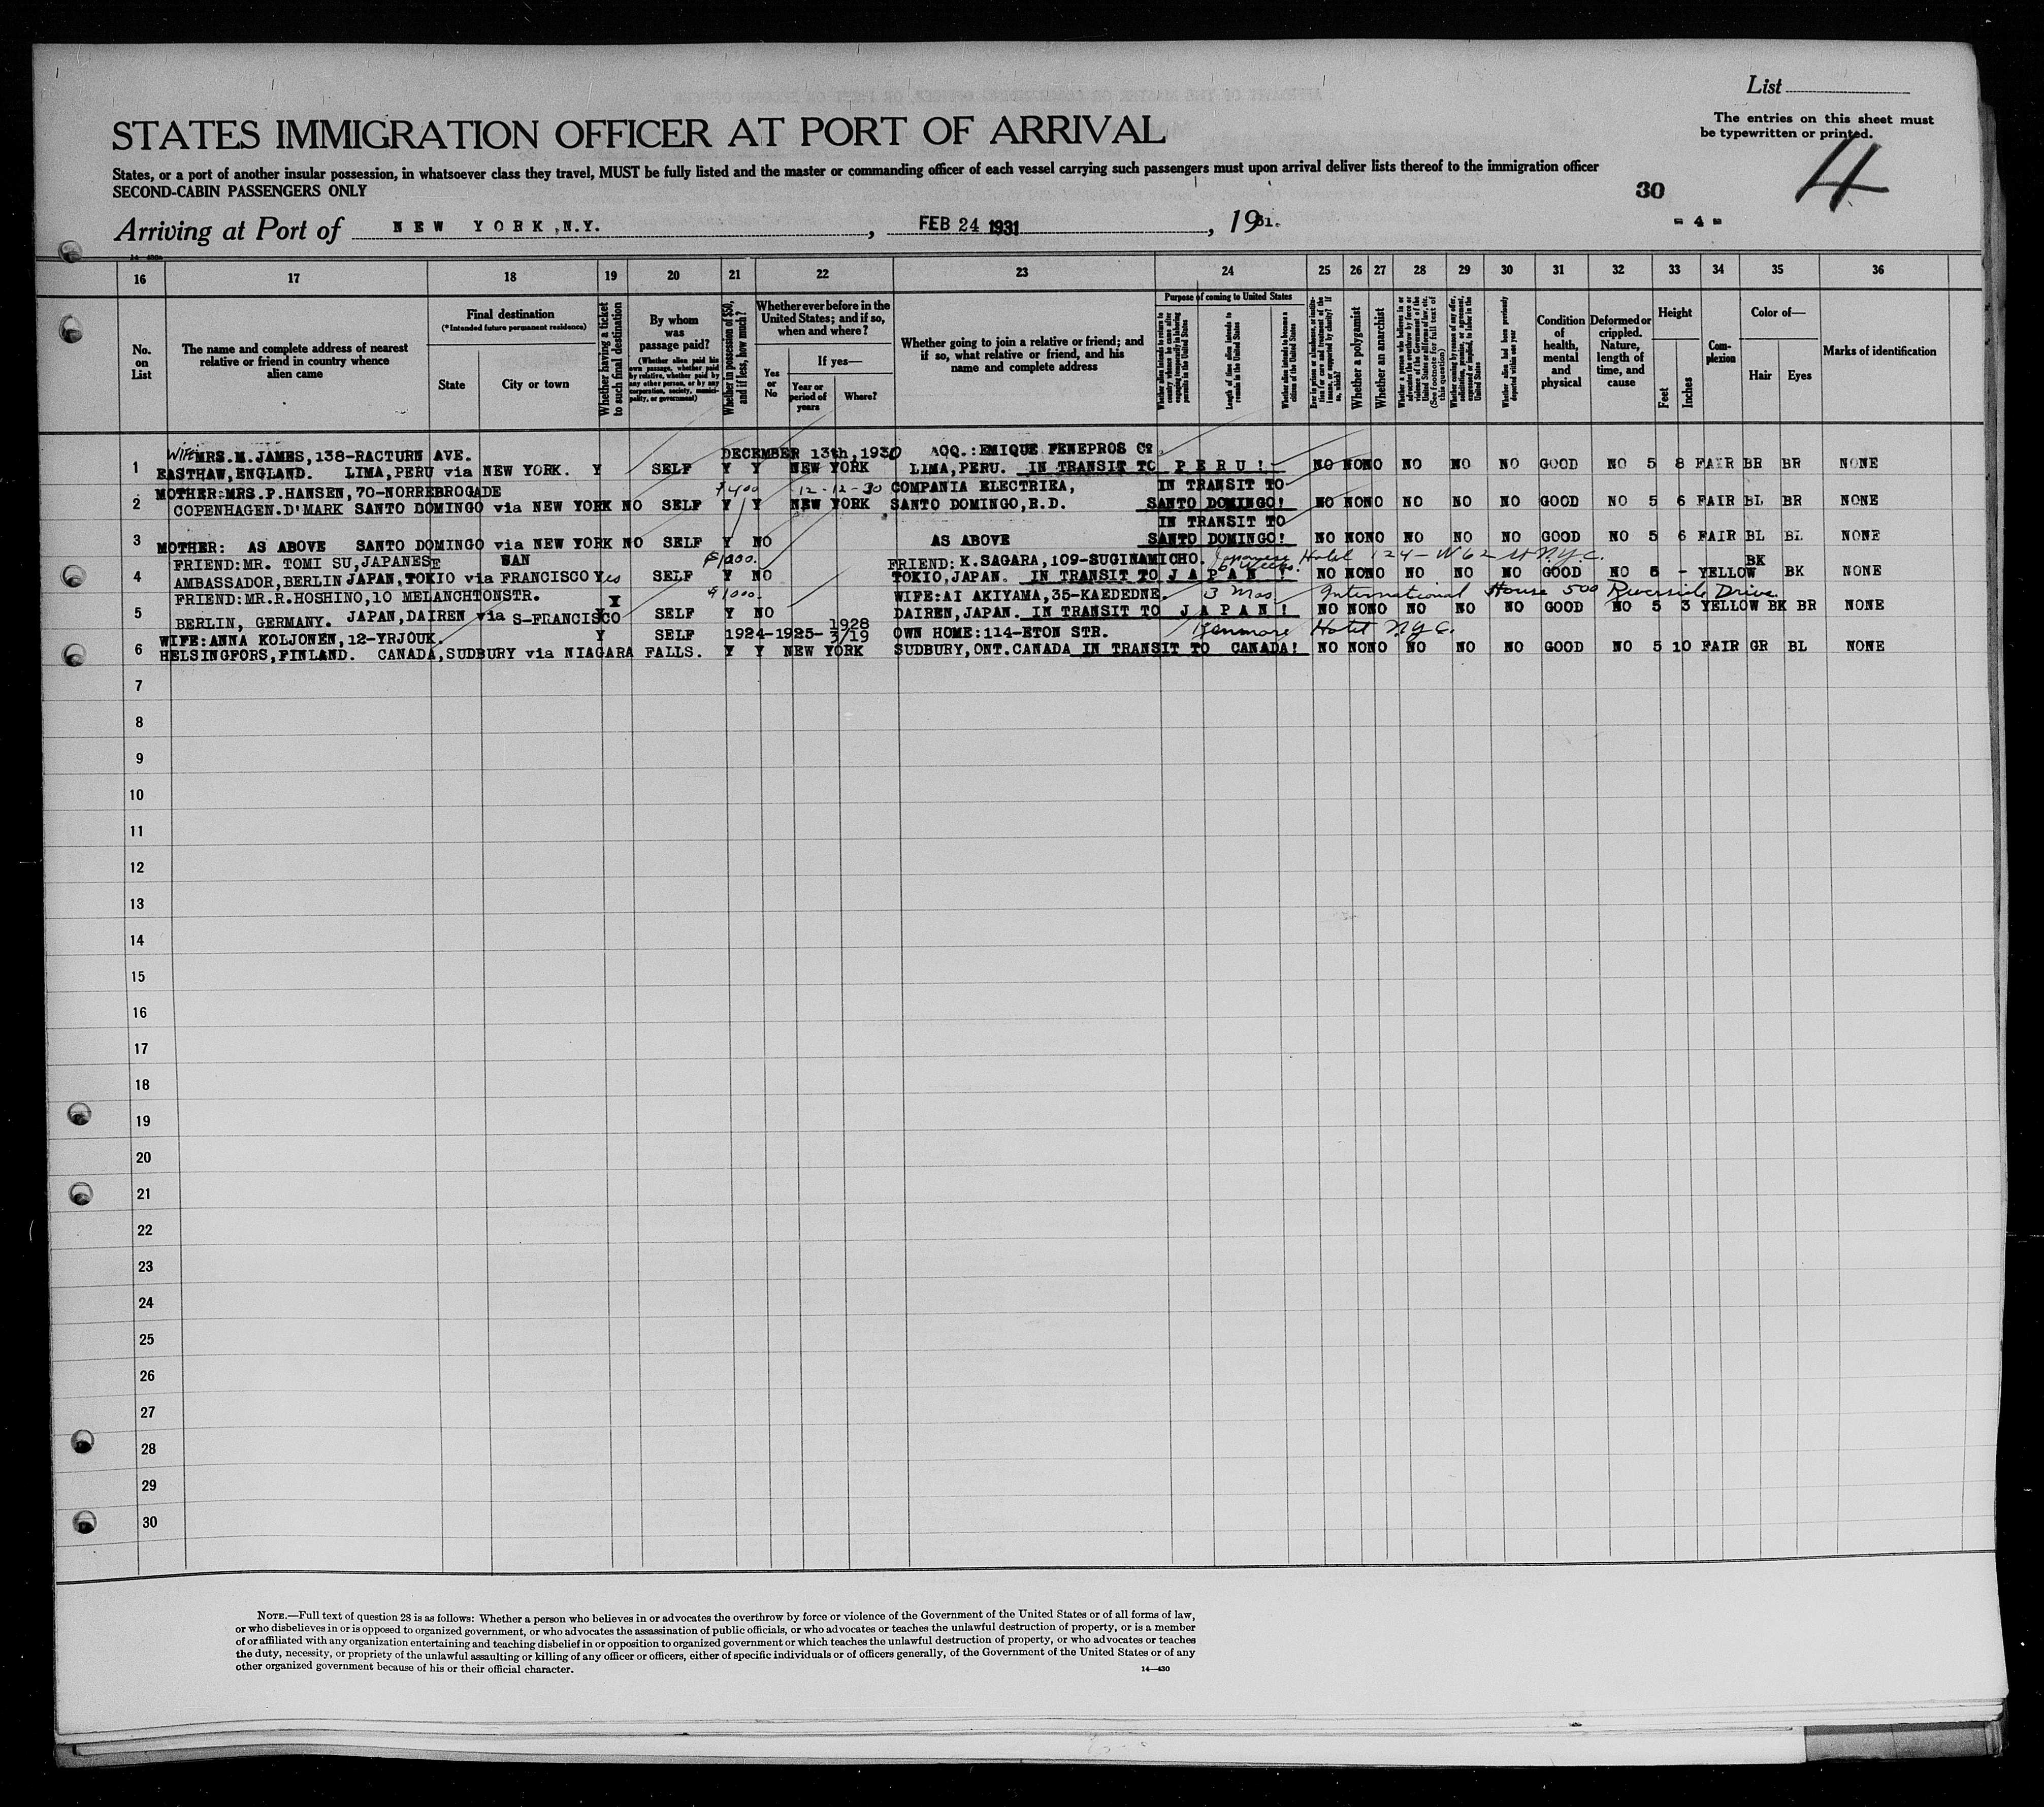 List
The entries on this sheet must
be typewritten or printed.
STATES IMMIGRATION OFFICER AT PORT OF ARRIVAL
States, or a port of another insular possession, in whatsoever class they travel, MUST be fully listed and the master or commanding officer of each vessel carrying such passengers must upon arrival deliver lists thereof to the immigration officer
SECOND-CABIN PASSENGERS ONLY
30
4
Arriving at Port of NEW YORK, N.Y. , FEB 24 1931 , 1931.
- 4 -
16 17 18 19 20 21 22 23 24 25 26 27 28 29 30 31 32 33 34 35 36
No. on List
The name and complete address of nearest relative or friend in country whence alien came
Final destination
(*Intended future permanent residence)
State
City or town
Whether having a ticket to such final destination
By whom was passage paid?
(Whether alien paid his own passage, whether paid by relative, whether paid by any other person, or by any corporation, society, municipality, or government)
Whether in possession of $50, and if less, how much?
Whether ever before in the United States; and if so, when and where?
Yes or No
If yes—
Year or period of years
Where?
Whether going to join a relative or friend; and if so, what relative or friend, and his name and complete address
Purpose of coming to United States
Whether alien intends to return to country whence he came after engaging temporarily in laboring pursuits in the United States
Length of time alien intends to remain in the United States
Whether alien intends to become a citizen of the United States
Ever in prison or almshouse, or institution for care and treatment of the insane, or supported by charity? If so, which?
Whether a polygamist
Whether an anarchist
Whether a person who believes in or advocates the overthrow by force or violence of the Government of the United States or all forms of law, etc. (See footnote for full text of this question)
Whether coming by reason of any offer, solicitation, promise, or agreement, expressed or implied, to labor in the United States
Whether alien had been previously deported within one year
Condition of health, mental and physical
Deformed or crippled. Nature, length of time, and cause
Height
Feet
Inches
Complexion
Color of—
Hair
Eyes
Marks of identification
WIFE MRS. M. JAMES, 138-RACTURN AVE. DECEMBER 13th, 1930 ACQ.: EMIQUE FENEPROS Co
1 EASTHAW, ENGLAND. LIMA, PERU via NEW YORK. Y SELF Y Y NEW YORK LIMA, PERU. IN TRANSIT TO PERU! NO NO NO NO NO NO GOOD NO 5 8 FAIR BR BR NONE
MOTHER: MRS. P. HANSEN, 70-NORREBROGADE $400 12-12-30 COMPANIA ELECTRIKA, IN TRANSIT TO
2 COPENHAGEN. D'MARK SANTO DOMINGO via NEW YORK NO SELF Y Y NEW YORK SANTO DOMINGO, R.D. SANTO DOMINGO! NO NO NO NO NO NO GOOD NO 5 6 FAIR BL BR NONE
IN TRANSIT TO
3 MOTHER: AS ABOVE SANTO DOMINGO via NEW YORK NO SELF Y NO AS ABOVE SANTO DOMINGO! NO NO NO NO NO NO GOOD NO 5 6 FAIR BL BL NONE
FRIEND: MR. TOMI SU, JAPANESE SAN $1000. FRIEND: K. SAGARA, 109-SUGINAMICHO. 6 Weeks. Japanese Hotel 124-W 62 St N.Y.C. BK
4 AMBASSADOR, BERLIN JAPAN, TOKIO via FRANCISCO Yes SELF Y NO TOKIO, JAPAN. IN TRANSIT TO JAPAN! NO NO NO NO NO NO GOOD NO 5 - YELLOW BK NONE
FRIEND: MR. R. HOSHINO, 10 MELANCHTONSTR. Y $1000. WIFE: AI AKIYAMA, 35-KAEDEDNE. 3 Mos. International House 500 Riverside Drive.
5 BERLIN, GERMANY. JAPAN, DAIREN via S-FRANCISCO SELF Y NO DAIREN, JAPAN. IN TRANSIT TO JAPAN! NO NO NO NO NO NO GOOD NO 5 3 YELLOW BK BR NONE
WIFE: ANNA KOLJONEN, 12-YRJOUK. Y SELF 1924-1925-1928 3/19 OWN HOME: 114-ETON STR. Kenmore Hotel N.Y.C.
6 HELSINGFORS, FINLAND. CANADA, SUDBURY via NIAGARA FALLS. Y Y NEW YORK SUDBURY, ONT. CANADA IN TRANSIT TO CANADA! NO NO NO NO NO NO GOOD NO 5 10 FAIR GR BL NONE
7
8
9
10
11
12
13
14
15
16
17
18
19
20
21
22
23
24
25
26
27
28
29
30
NOTE.—Full text of question 28 is as follows: Whether a person who believes in or advocates the overthrow by force or violence of the Government of the United States or of all forms of law,
or who disbelieves in or is opposed to organized government, or who advocates the assassination of public officials, or who advocates or teaches the unlawful destruction of property, or is a member
of or affiliated with any organization entertaining and teaching disbelief in or opposition to organized government or which teaches the unlawful destruction of property, or who advocates or teaches
the duty, necessity, or propriety of the unlawful assaulting or killing of any officer or officers, either of specific individuals or of officers generally, of the Government of the United States or of any
other organized government because of his or their official character.
14—430